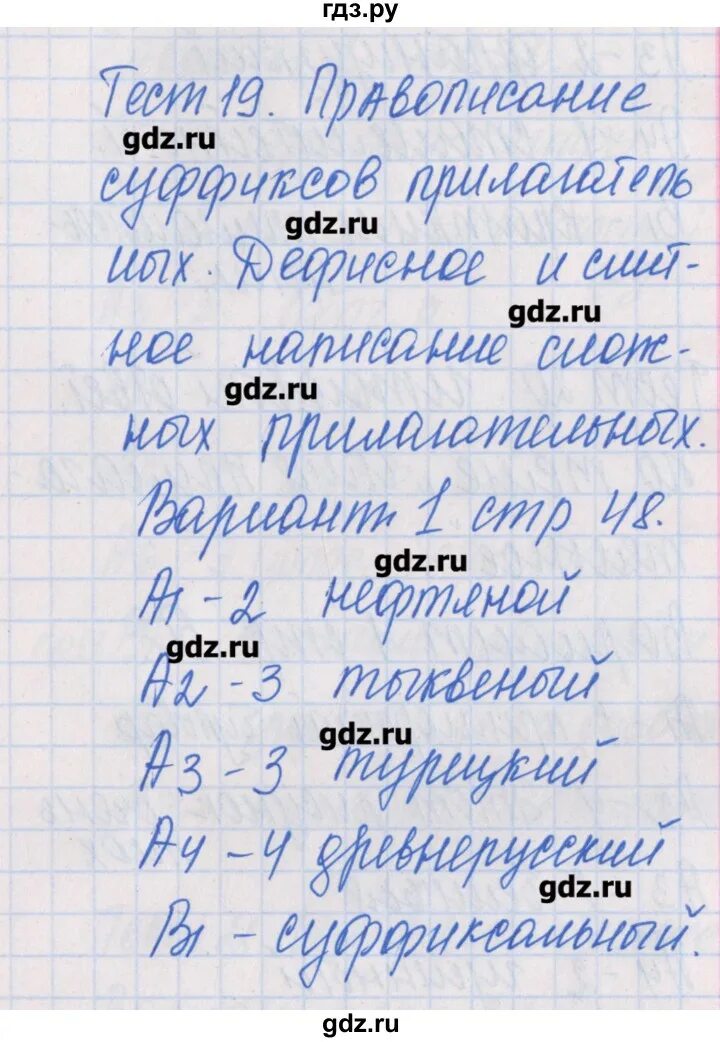 гдз.ру
Тест 19. Правописание
gdz.ru
суффиксов прилагатель
gdz.ru
ных. Дефисное и слит-
gdz.ru
ное написание слож-
gdz.ru
ных прилагательных.
Вариант 1 стр 48.
gdz.ru
А1 - 2 нефтяной
gdz.ru
А2 - 3 тыквеный
gdz.ru
А3 - 3 турецкий
А4 - 4 древнерусский
gdz.ru
В1 - суффиксальный.
gdz.ru